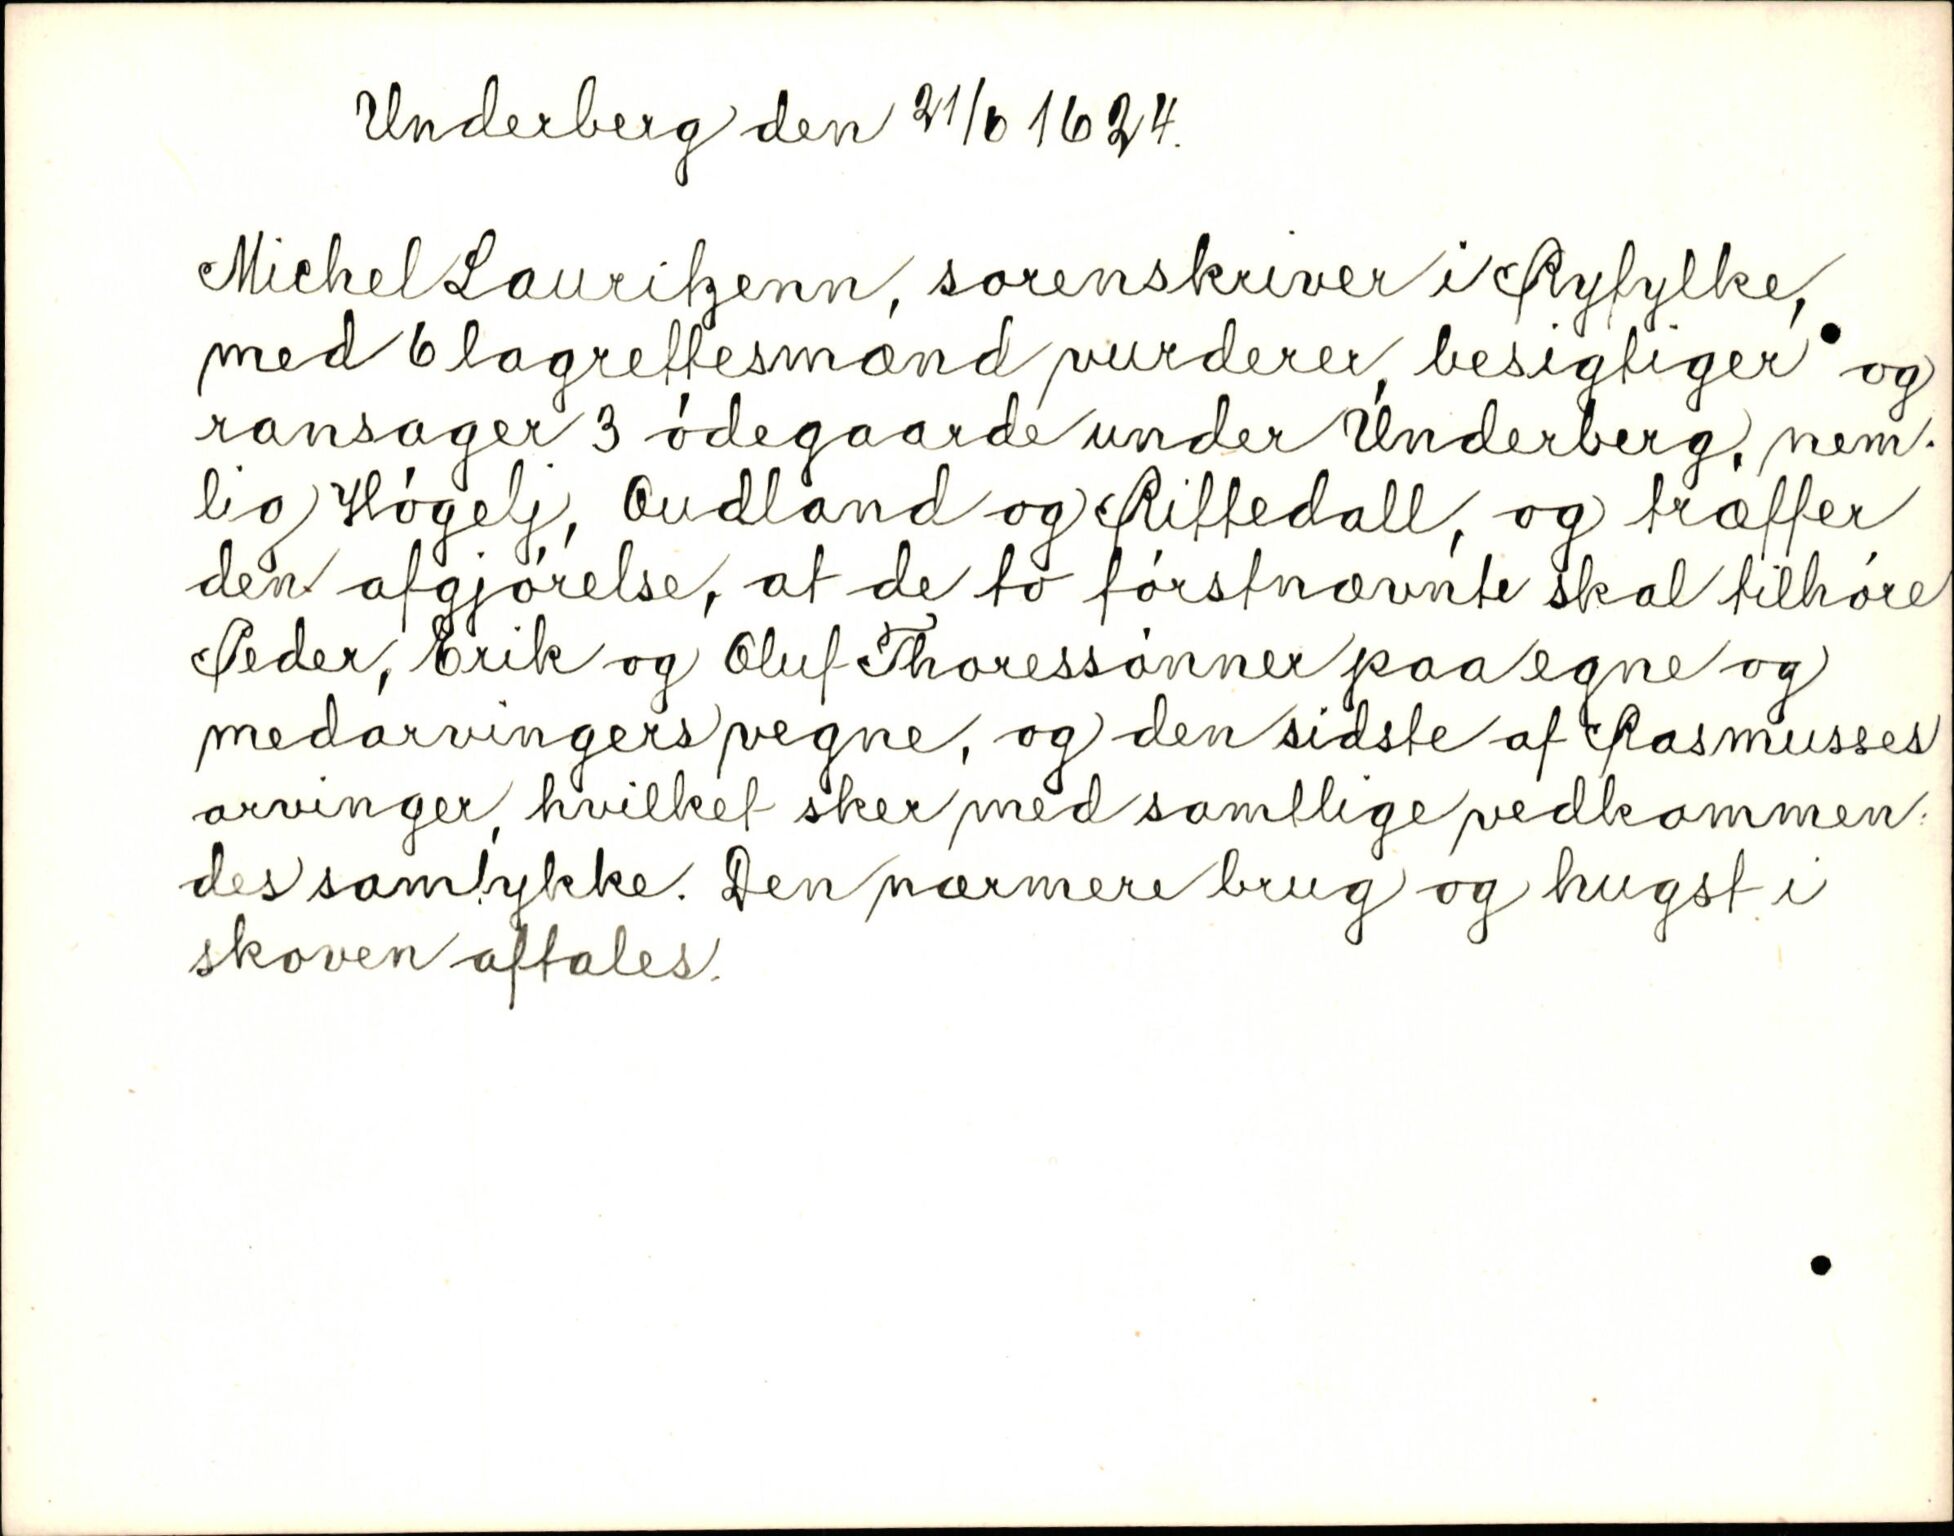 Underberg den 21/6 1624.
Michel Lauritzenn, sorenskriver i Ryfylke,
med 6 lagrettesmænd vurderer, besigtiger og
ransager 3 ódegaarde under Underberg, nem-
lig Högelj, Oudland og Rittedall, og træffer
den afgjórelse, at de to fórstnævnte skal tilhóre
Peder, Erik og Oluf Thoressónner paa egne og
medarvingers vegne, og den sidste af Rasmusses
arvinger, hvilket sker med samtlige vedkommen-
des samtykke. Den nærmere brug og hugst i
skoven aftales.